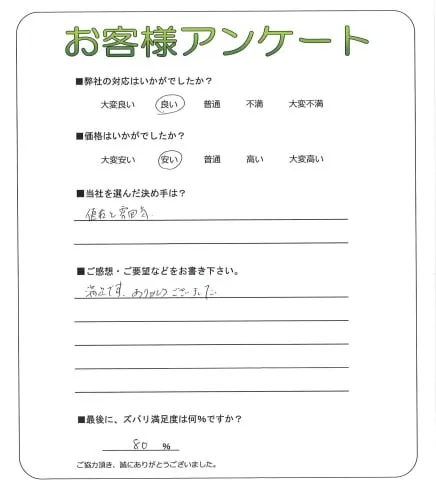 お客様アンケート
■弊社の対応はいかがでしたか？
大変良い 良い 普通 不満 大変不満
■価格はいかがでしたか？
大変安い 安い 普通 高い 大変高い
■当社を選んだ決め手は？
値段と雰囲気
■ご感想・ご要望などをお書き下さい。
満足です。ありがとうございました
■最後に、ズバリ満足度は何％ですか？
80 ％
ご協力頂き、誠にありがとうございました。